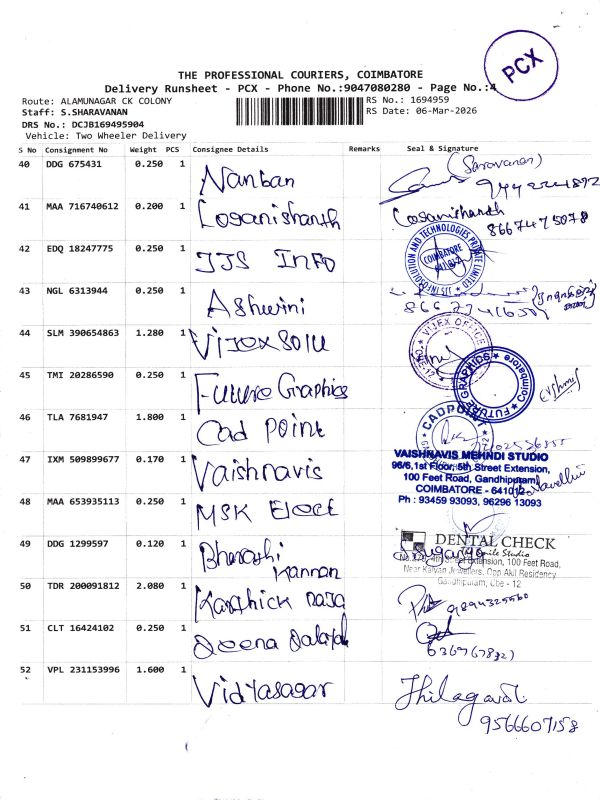 PCX
THE PROFESSIONAL COURIERS, COIMBATORE
Delivery Runsheet - PCX - Phone No.:9047080280 - Page No.:4
Route: ALAMUNAGAR CK COLONY
RS No.: 1694959
Staff: S.SHARAVANAN
RS Date: 06-Mar-2026
DRS No.: DCJB169495904
Vehicle: Two Wheeler Delivery
S No Consignment No Weight PCS Consignee Details Remarks Seal & Signature
40 DDG 675431 0.250 1 Nanban (Saravanan)
41 MAA 716740612 0.200 1 Losanishanth Losanishanth
8667475078
42 EDQ 18247775 0.250 1 JJS INFO COIMBATORE
43 NGL 6313944 0.250 1 Ashwini
44 SLM 390654863 1.280 1 VIJEX OFFICE
45 TMI 20286590 0.250 1 Future Graphics FUTURE GRAPHICS Coimbatore
46 TLA 7681947 1.800 1 Cad Point CADPOINT
47 IXM 509899677 0.170 1 Vaishnavis VAISHNAVIS MEHNDI STUDIO
96/6,1st Floor, 5th Street Extension,
100 Feet Road, Gandhipuram,
COIMBATORE - 641012
Ph : 93459 93093, 96296 13093
48 MAA 653935113 0.250 1 MSK Elect
49 DDG 1299597 0.120 1 Bharathi Kannan DENTAL CHECK
The Smile Studio
Street Extension, 100 Feet Road,
Near Kalyan Jewellers, Opp Akil Residency
Gandhipuram, Cbe - 12
50 TDR 200091812 2.080 1 Karthick Raja
51 CLT 16424102 0.250 1 Deena
52 VPL 231153996 1.600 1 Vidyasagar Thilagavati
9566607158